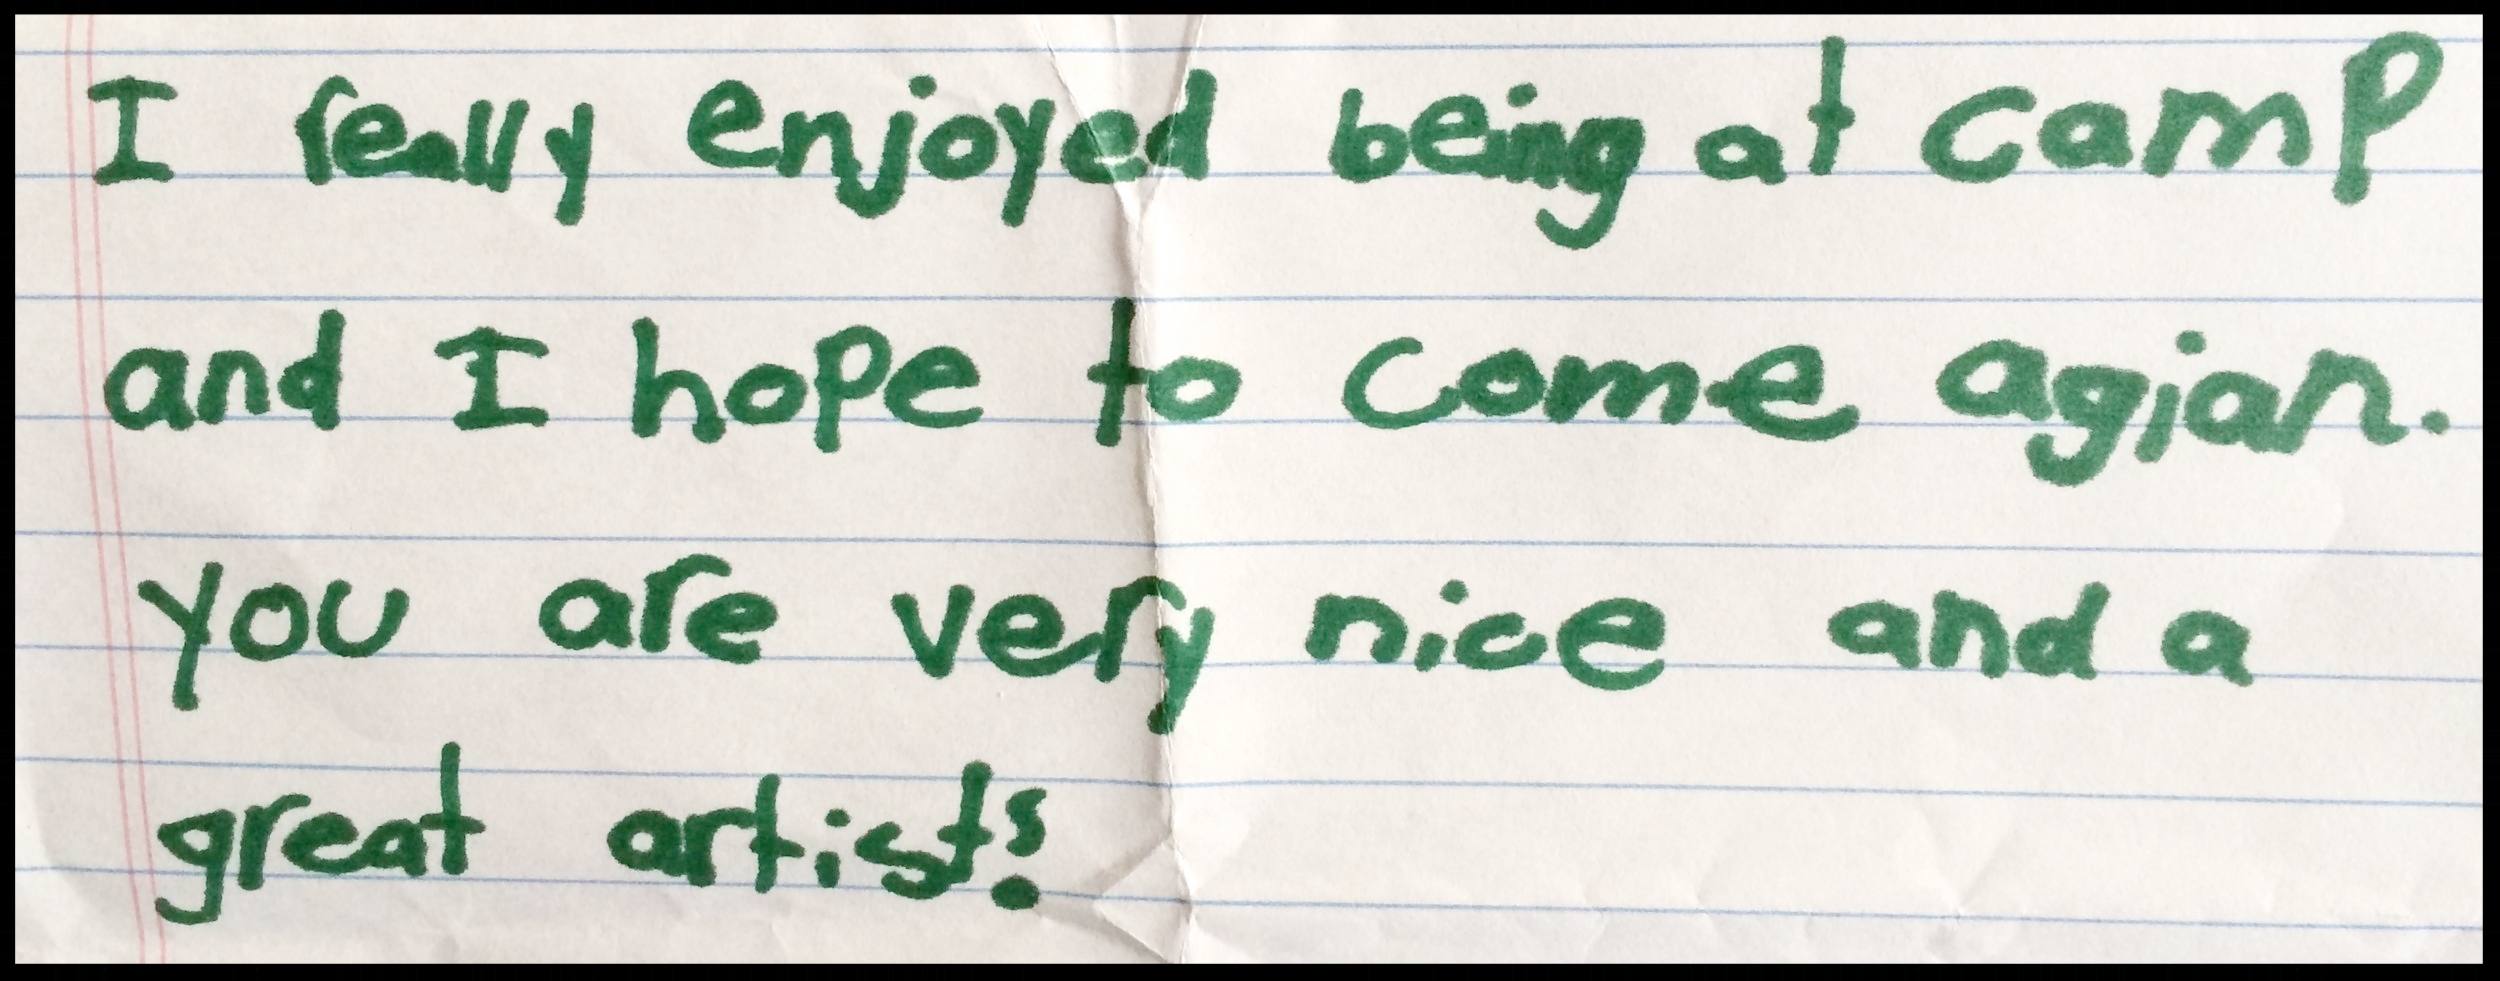 I really enjoyed being at camp
and I hope to come agian.
you are very nice and a
great artist!